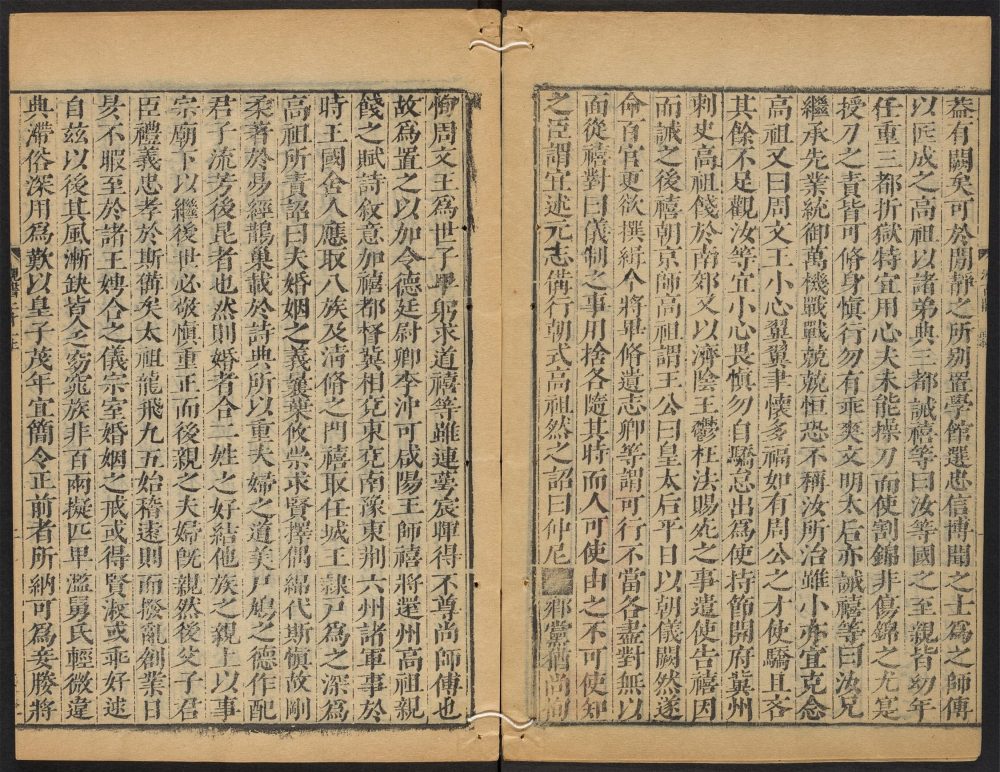 益有闕矣可於閒靜之所別置學館選忠信博聞之士爲之師傅
以匠成之高祖以諸弟典三都誡禧等曰汝等國之至親皆幼年
任重三都折獄特宜用心夫未能操刀而使割錦非傷錦之尤寔
授刀之責皆可脩身愼行勿有乖爽文明太后亦誡禧等曰汝兄
繼承先業統御萬機戰戰兢兢恒恐不稱汝所治雖小亦宜克念
高祖又曰周文王小心翼翼聿懷多福如有周公之才使驕且吝
其餘不足觀汝等宜小心畏愼勿自驕怠出爲使持節開府冀州
刺史高祖餞於南郊又以濟陰王鬱枉法賜死之事遣使告禧因
而誡之後禧朝京師高祖謂王公曰皇太后平日以朝儀闕然遂
命百官更欲撰緝今將畢脩遺志卿等謂可行不當各盡對無以
面從禧對曰儀制之事用捨各隨其時而人可使由之不可使知
之臣謂宜述元志備行朝式高祖然之詔曰仲尼鄉黨猶尚
恂周文王爲世子卑躬求道禧等雖連萼宸暉得不尊尚師傅也
故爲置之以加令德廷尉卿李沖可咸陽王師禧將還州高祖親
餞之賦詩敘意加禧都督冀相兗東兗南豫東荆六州諸軍事於
時王國舍人應取八族及清脩之門禧取任城王隷戸爲之深爲
高祖所責詔曰夫婚姻之義曩葉攸崇求賢擇偶緜代斯愼故剛
柔著於易經鵲巢載於詩典所以重夫婦之道美尸鳩之德作配
君子流芳後昆者也然則婚者合二姓之好結他族之親上以事
宗廟下以繼後世必敬愼重正而後親之夫婦旣親然後父子君
臣禮義忠孝於斯備矣太祖龍飛九五始稽遠則而撥亂創業日
昃不暇至於諸王娉合之儀宗室婚姻之戒或得賢淑或乖好逑
自玆以後其風漸缺皆人乏窈窕族非百兩擬匹卑濫舅氏輕微違
典滯俗深用爲歎以皇子茂年宜簡令正前者所納可爲妾媵將